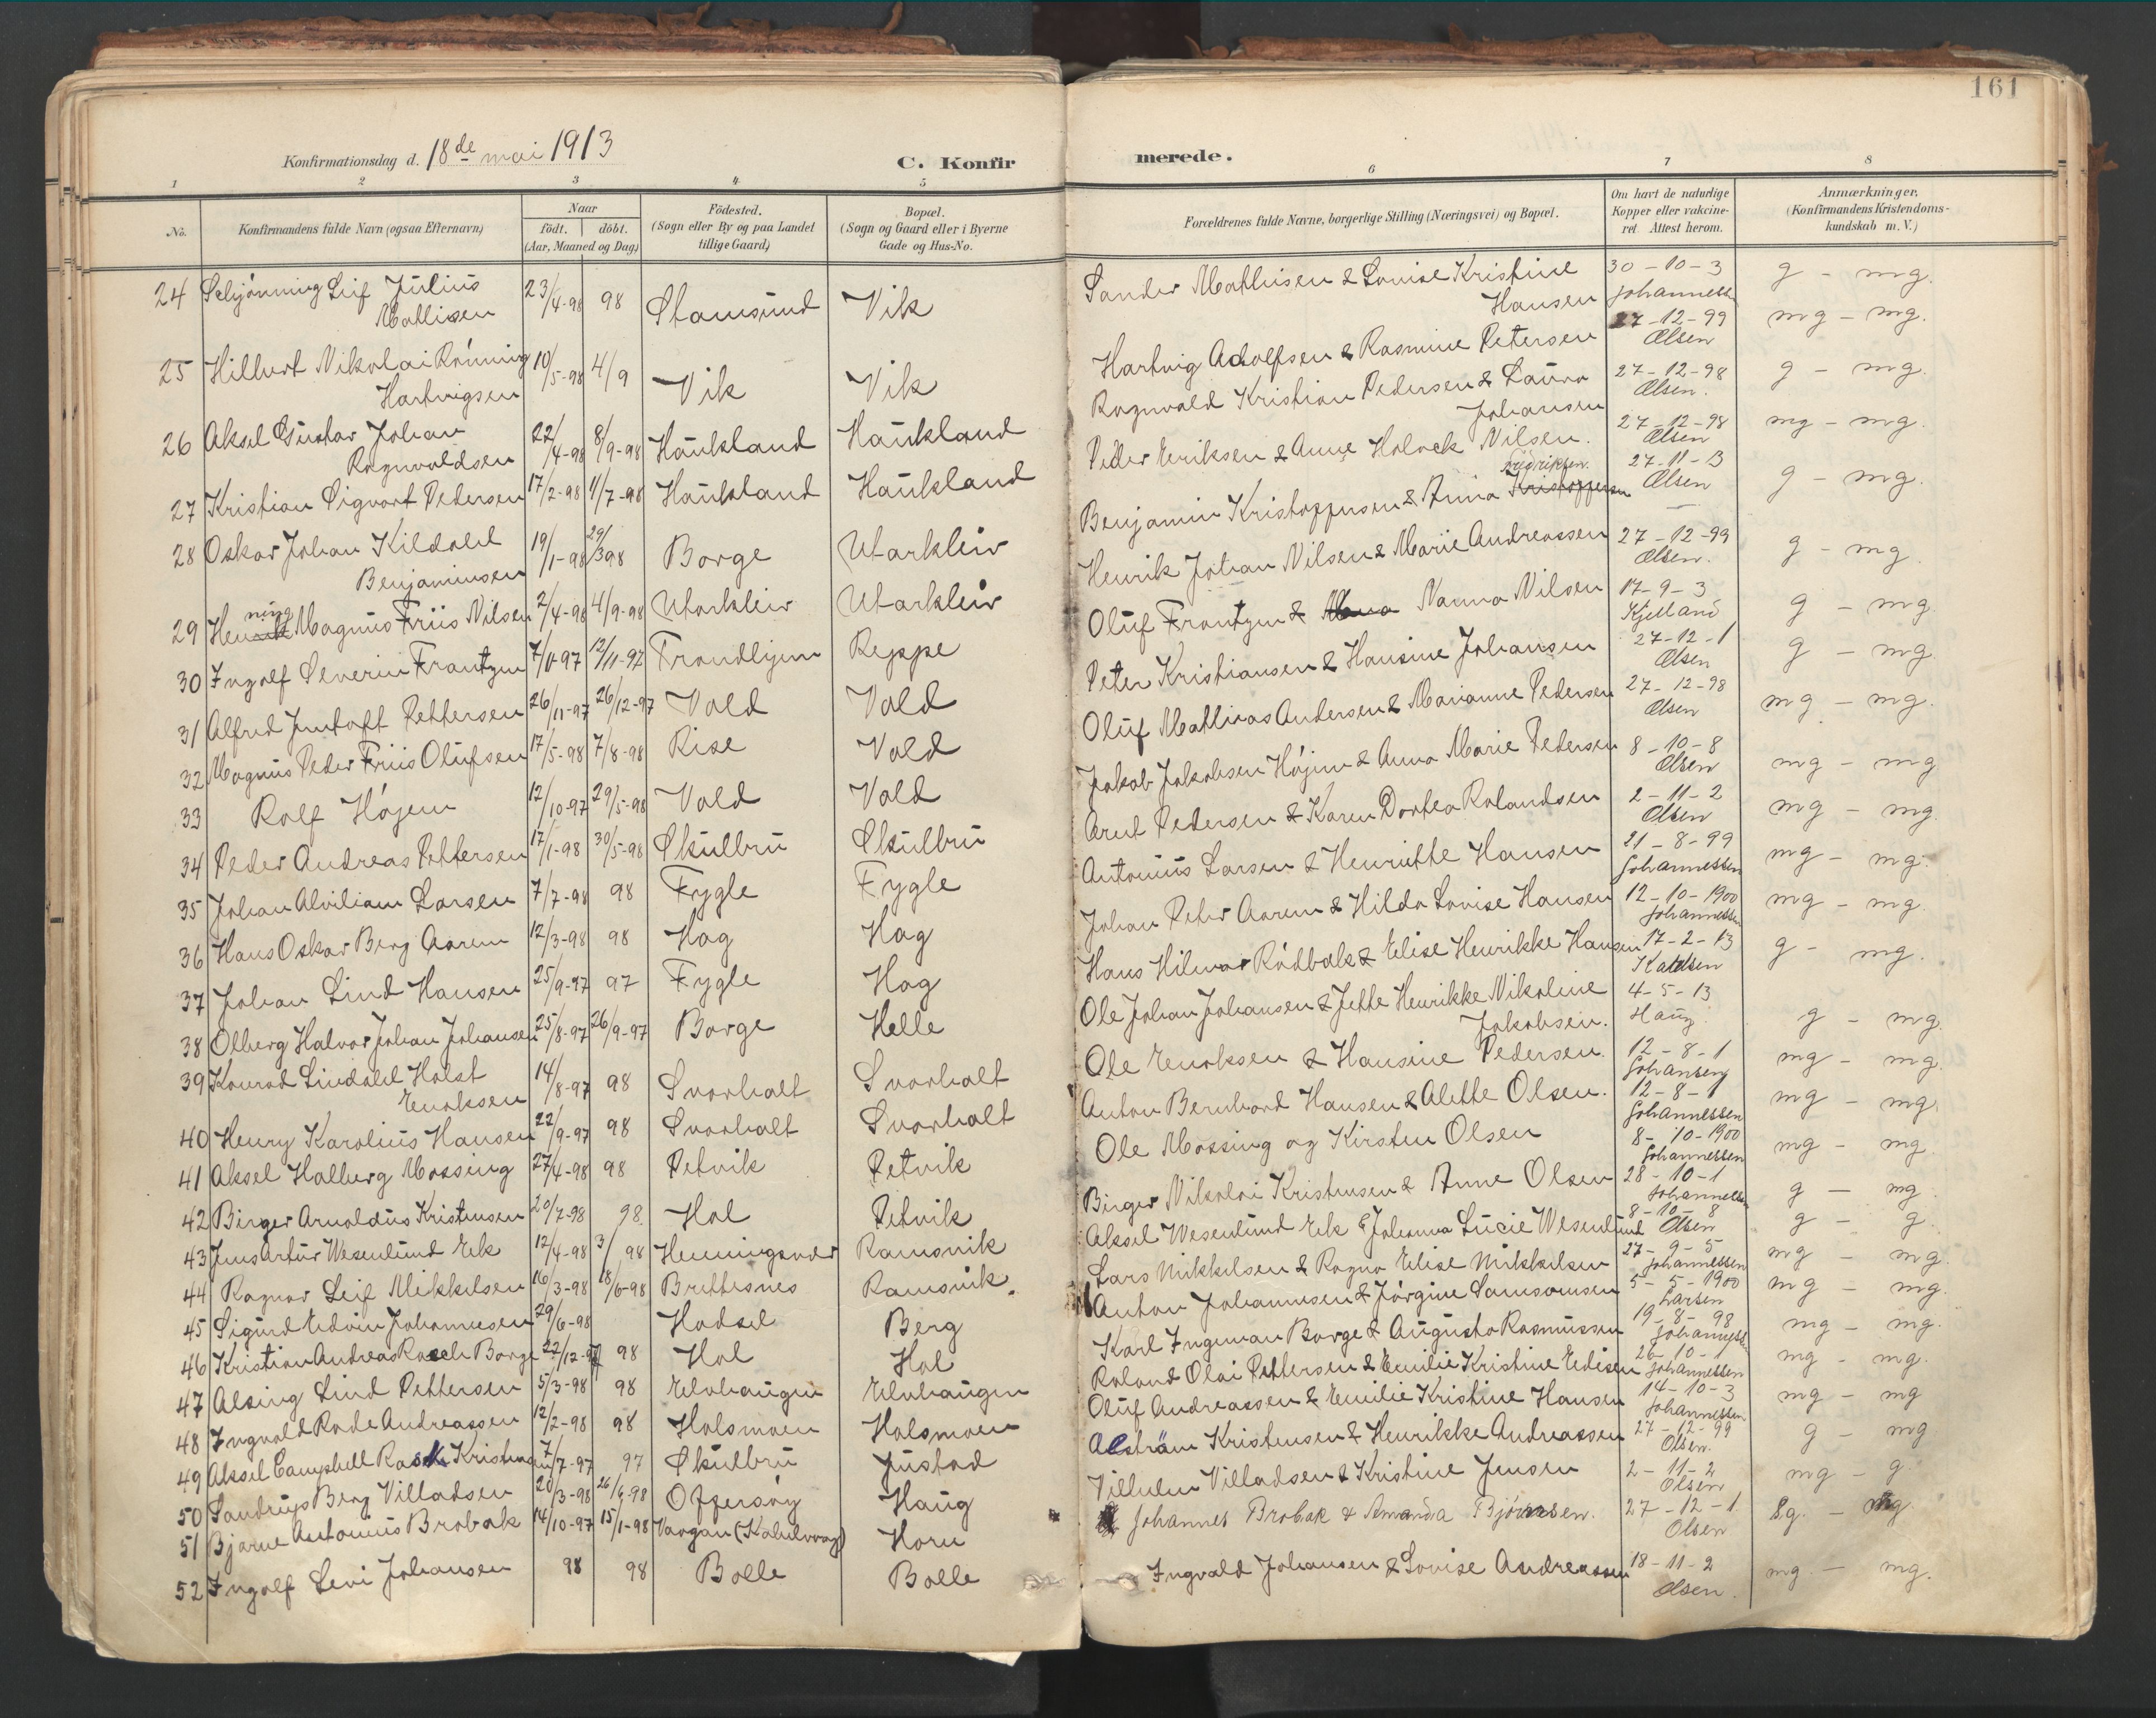 161
Konfirmationsdag d. 18de mai 1913
C. Konfirmerede.
1 2 3 4 5 6 7 8
No.
Konfirmandens fulde Navn (ogsaa Efternavn)
Naar
födt. döbt.
(Aar, Maaned og Dag)
Födested.
(Sogn eller By og paa Landet
tillige Gaard)
Bopæl.
(Sogn og Gaard eller i Byerne
Gade og Hus-No.
Forældrenes fulde Navne, borgerlige Stilling (Næringsvei) og Bopæl.
Om havt de naturlige
Kopper eller vakcine-
ret. Attest herom.
Anmærkninger.
(Konfirmandens Kristendoms-
kundskab m. V.)
24 Schjönning Leif Julius 23/4-98 98 Stamsund Vik Sander Mathisen & Lovise Kristine 30-10-3 g - mg.
Mathisen Hansen Johannessen
25 Hilbert Nikolai Rönning 10/5-98 4/9 Vik Vik Hartvig Adolfsen & Rasmine Petersen 27-12-99 mg - mg.
Hartvigsen Olsen
26 Aksel Gustav Johan 22/4-98 8/9-98 Haukland Haukland Ragnvald Kristian Pedersen & Laura 27-12-98 g - mg.
Ragnvaldsen Johansen Olsen.
27 Kristian Sigvart Pedersen 17/2-98 11/7-98 Haukland Haukland Peder Eriksen & Anne Holock Nilsen. 27-12-98 mg - mg.
Olsen
28 Oskar Johan Kildahl 19/1-98 29/3 98 Borge Utarkleiv Benjamin Kristoffersen & Anna Kristoffersen Fredriksen. 27-11-13 g - mg.
Benjaminsen Olsen
29 Henning Magnus Friis Nilsen 2/4-98 4/9-98 Utarkleiv Utarkleiv Henrik Johan Nilsen & Marie Andreassen 27-12-99 g - mg.
Olsen.
30 Ingolf Severin Frantzen 7/6-97 12/11-97 Trondhjem Reppe Oluf Frantzen & Nanna Nilsen 17-9-3 g - mg.
Kjelland
31 Alfred Jentoft Pettersen 26/11-97 26/12-97 Vold Vold Peter Kristiansen & Hansine Johansen 27-12-1 g - mg.
Olsen
32 Magnus Peder Friis Olufsen 17/5-98 7/8-98 Rise Vold Oluf Mathias Andersen & Marianne Pedersen 27-12-98 mg - mg.
Olsen
33 Rolf Höjem 12/10-97 29/5-98 Vold Vold Jakob Jakobsen Höjem & Anna Marie Pedersen 8-10-8 mg - mg
Olsen
34 Peder Andreas Pettersen 17/1-98 30/5-98 Skulbru Skulbru Arnt Pedersen & Karen Dortea Rolandsen 2-11-2 mg - mg.
Olsen
35 Johan Alviliam Larsen 7/7-98 98 Fygle Fygle Antonius Larsen & Henriette Hansen 21-8-99 mg - mg.
Johannessen
36 Hans Oskar Berg Aarem 12/3-98 98 Hag Hag Johan Peter Aarem & Hilda Lovise Hansen 12-10-1900 mg - mg.
Johannessen
37 Johan Lind Hansen 25/9-97 97 Fygle Hag Hans Hilmar Rödbak & Elise Henrikke Hansen 17-2-13 g - mg.
38 Olberg Halvor Johan Johansen 25/8-97 26/9-97 Borge Helle Ole Johan Johansen & Jette Henrikke Nikoline 4-5-13 g - mg.
Jakobsen. Haug.
39 Konrad Lindahl Holst 14/8-97 98 Svarholt Svarholt Ole Enoksen & Hansine Pedersen. 12-8-1 mg - mg.
Enoksen Johansen
40 Henry Karolius Hansen 22/9-97 98 Svarholt Svarholt Anton Bernhard Hansen & Alette Olsen. 12-8-1 mg - mg.
Johannessen
41 Aksel Halberg Mossing 27/4-98 98 Petvik Petvik Ole Mossing og Kirsten Olsen 8-10-1900 mg - mg.
Johannessen
42 Birger Arnoldus Kristensen 20/7-98 98. Hol Petvik Birger Nikolai Kristensen & Anne Olsen 28-10-1 g - mg.
Johannessen
43 Jens Artur Wesenlund Eek 12/4-98 3/ 98 Henningsvær Ramsvik Aksel Wesenlund Eek & Johanna Lucie Wesenlund 8-10-8 g - g.
Olsen
44 Ragnar Leif Mikkelsen 16/3-98 18/6-98 Brettesnes Ramsvik. Lars Mikkelsen & Ragna Elise Mikkelsen 27-9-5 mg - mg.
Johannessen
45 Sigurd Edvin Johannesen 29/6-98 Hadsel Berg Anton Johannesen & Jörgine Samsonsen 5-5-1900 mg - mg.
Larsen
46 Kristian Andreas Rasch Borge 22/12-97 98 Hol Hol Karl Ingeman Borge & Augusta Rasmussen 19-8-98 mg - mg.
Johannessen
47 Alsing Lind Pettersen 5/3-98 98 Elvhaugen Elvhaugen Roland Olai Pettersen & Emilie Kristine Edisen 26-10-1 mg - mg.
Johannessen
48 Ingvald Rode Andreassen 12/2-98 98 Holsmoen Holsmoen Oluf Andreassen & Emilie Kristine Hansen 14-10-3 mg - mg
Johannessen
49 Aksel Campbell Rask Kristensen 7/7-97 97 Skulbru Justad Alström Kristensen & Henrikke Andreassen 27-12-99 g - mg
Olsen.
50 Sandrup Berg Villadsen 20/3-98 26/6-98 Offersöy Haug Vilhelm Villadsen & Kristine Jensen 2-11-2 mg - g.
Olsen
51 Bjarne Antonius Brobak 14/10-97 15/1-98 Vaagan (Kabelvaag) Horn Johannes Brobak & Amanda Björnsen. 27-12-1. g. - mg.
Olsen
52 Ingolf Levi Johansen 98 98 Bolle Bolle Ingvald Johansen & Lovise Andreassen 18-11-2 mg. - mg.
Olsen.